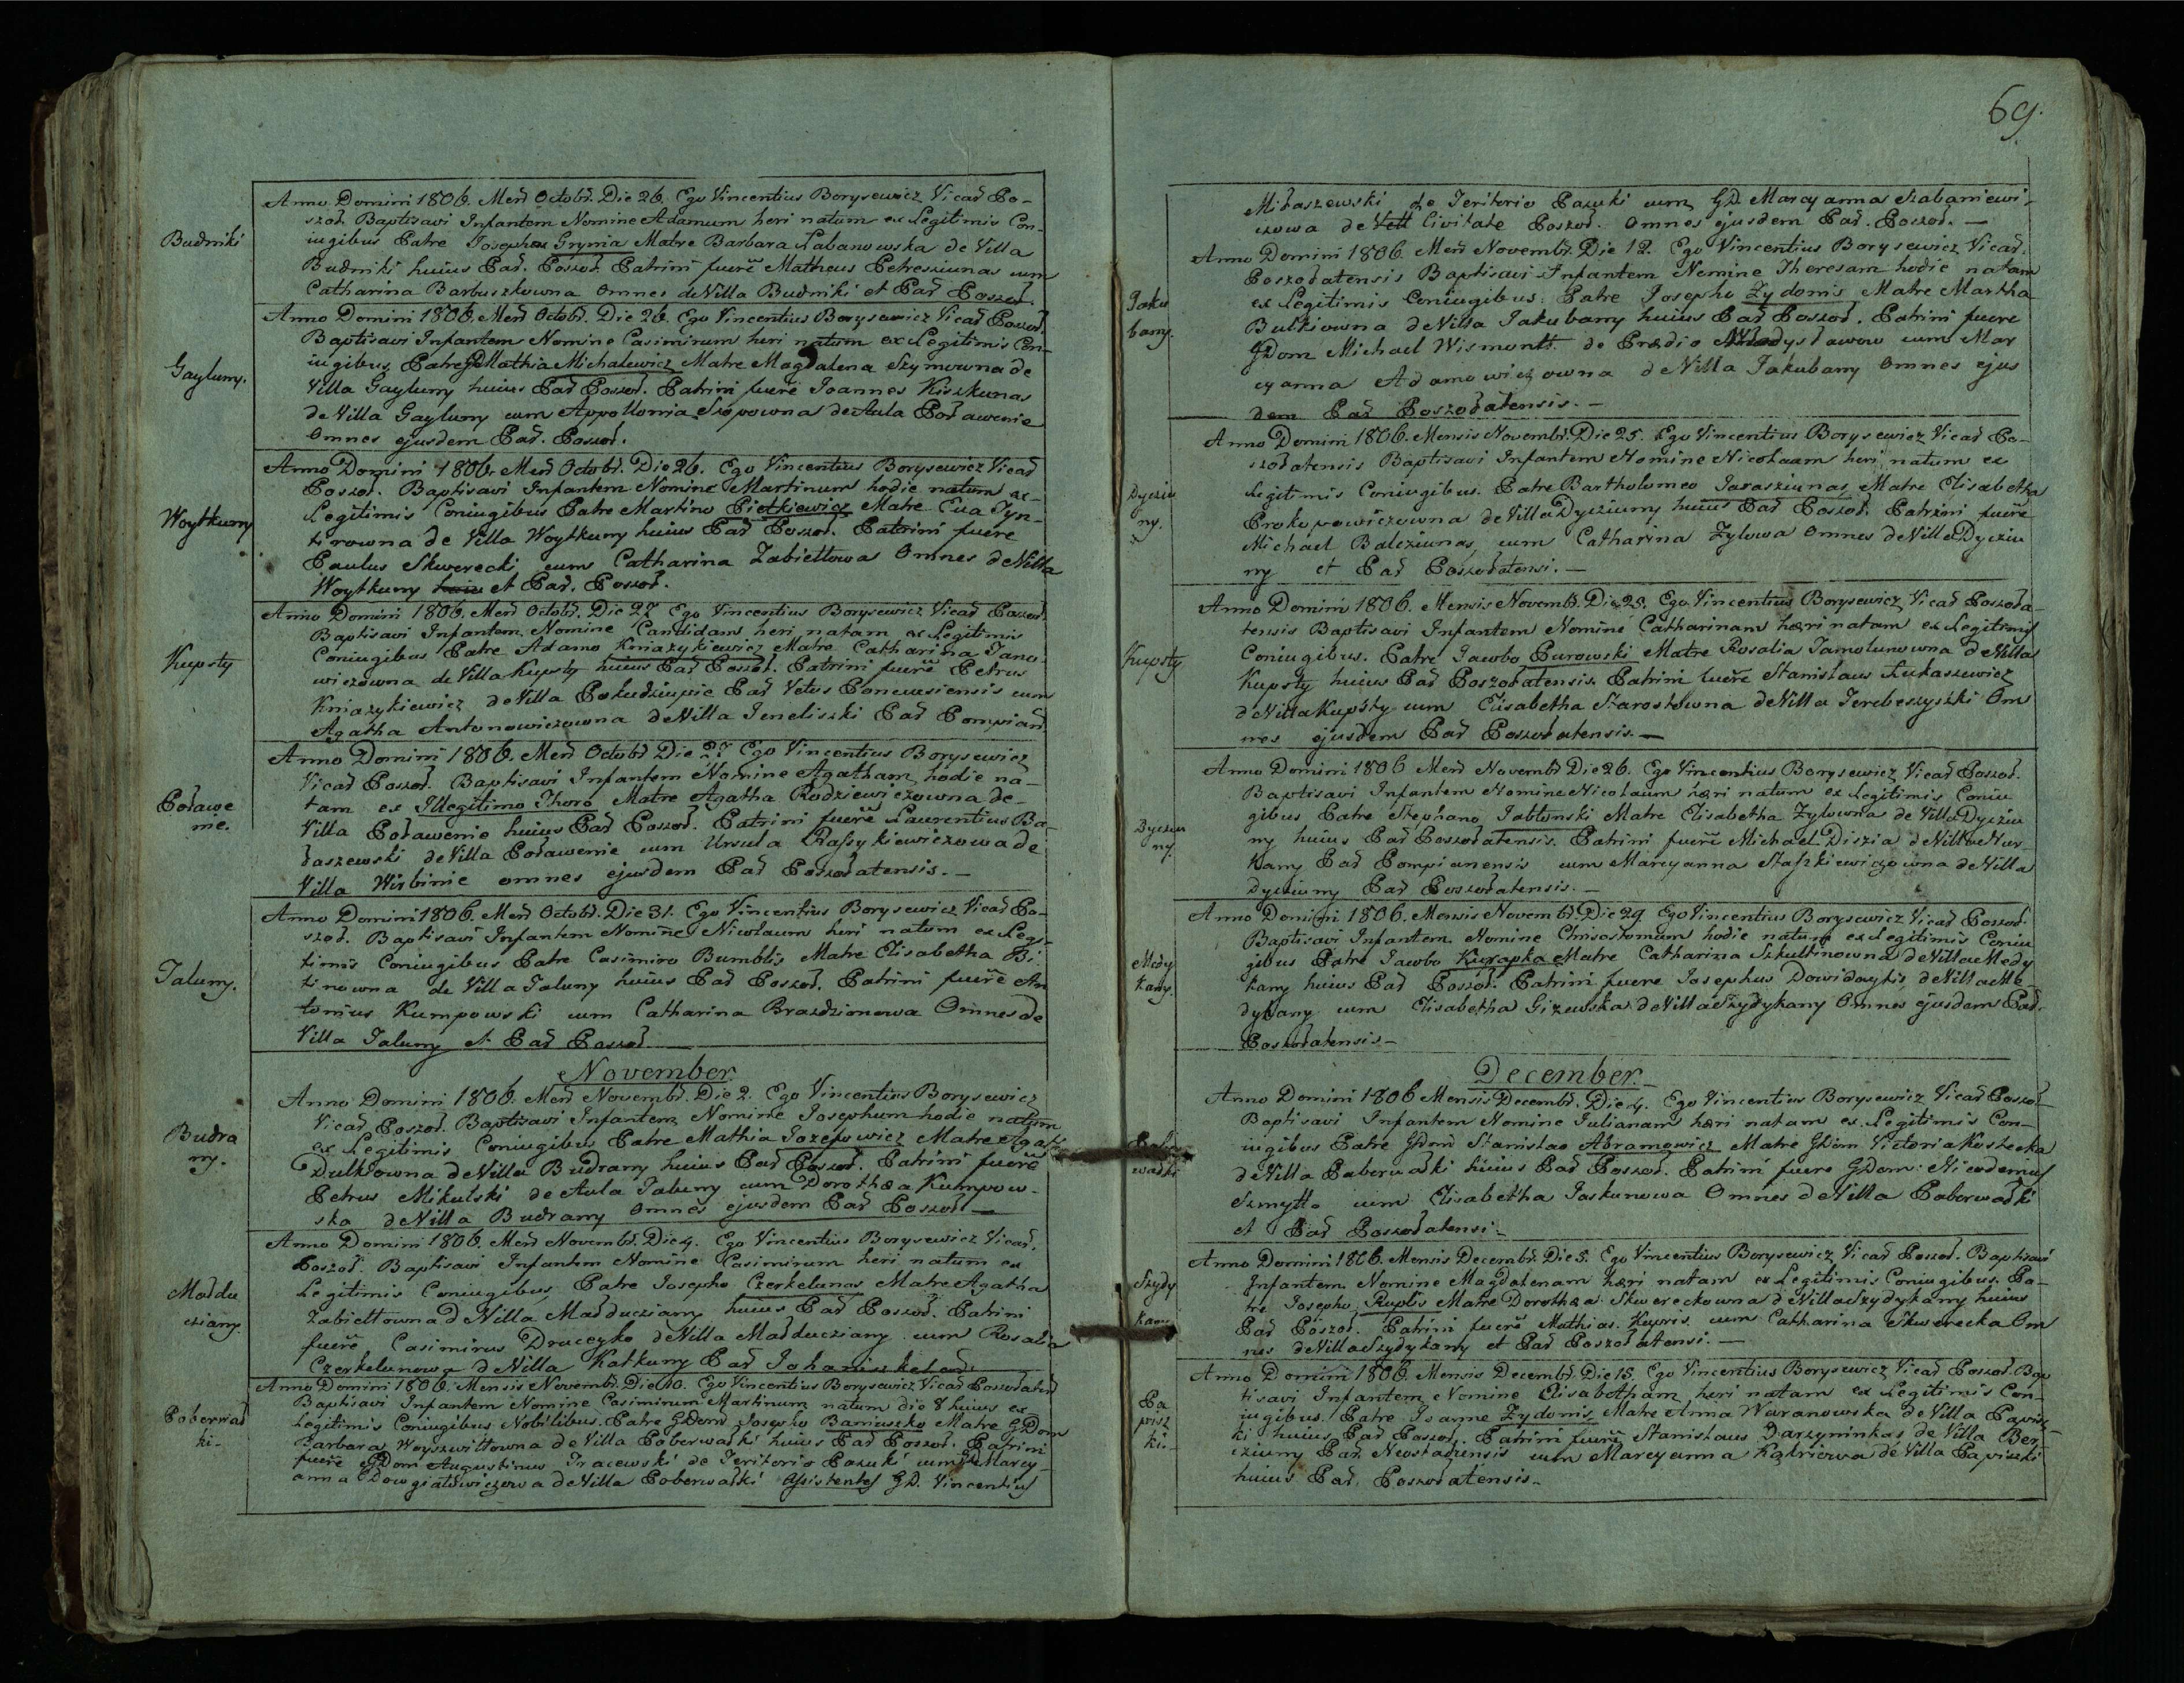 Budniki
Anno Domini 1806. Men̄ Octobr̄. Die 26. Ego Vincentius Borysewicz Vicar̄ Po-
szoł. Baptisavi Infantem Nomine Adamum heri natum ex Legitimis Con-
iugibus Patre Josepho Grynia Matre Barbara Łabanowska de Villa
Budniki huius Par̄. Poszoł. Patrini fuere Matheus Petresziunas cum
Catharina Barbuszkowna Omnes de Villa Budniki et Par̄ Poszoł.
Gayluny.
Anno Domini 1806. Men̄ Octobr̄. Die 26. Ego Vincentius Borysewicz Vicar̄ Poszoł.
Baptisavi Infantem Nomine Casimirum heri natum ex Legitimis Con-
iugibus Patre GD Mathia Michalewicz Matre Magdalena Szymowna de
Villa Gayluny huius Par̄ Poszoł. Patrini fuere Joannes Kiszkunas
de Villa Gayluny cum Appollonia Szopowna de Aula Poławenie
Omnes ejusdem Par̄. Poszoł.
Woytkuny
Anno Domini 1806. Men̄ Octobr̄. Die 26. Ego Vincentius Borysewicz Vicar̄
Poszoł. Baptisavi Infantem Nomine Martinum hodie natum ex
Legitimis Coniugibus Patre Martino Pietkiewicz Matre Eva Tyn-
terowna de Villa Woytkuny huius Par̄ Poszoł. Patrini fuere
Paulus Skwerecki cum Catharina Zabiettowa Omnes de Villa
Woytkuny huiu et Par̄. Poszoł.
Kupsty
Anno Domini 1806. Men̄ Octobr̄. Die 27 Ego Vincentius Borysewicz Vicar̄ Poszoł.
Baptisavi Infantem Nomine Candidam heri natam ex Legitimis
Coniugibus Patre Adamo Kniazykiewicz Matre Catharina Jano-
wiczowna de Villa Kupsty huius Par̄ Poszoł. Patrini fuere Petrus
Kniazykiewicz de Villa Połudziupie Par̄ Vetus Ponevusiensis cum
Agatha Antonowiczowna de Villa Jeneliszki Par̄ Pompian̄.
Poławe
nie.
Anno Domini 1806. Men̄ Octobr̄ Die 27 Ego Vincentius Borysewicz
Vicar̄ Poszoł. Baptisavi Infantem Nomine Agatham hodie na-
tam ex Illegitimo Thoro Matre Agatha Rodziewiczowna de
Villa Poławenie huius Par̄ Poszoł. Patrini fuere Laurentius Ba-
daszewski de Villa Poławenie cum Ursula Rassykiewiczowa de
Villa Wirbinie omnes ejusdem Par̄ Poszołatensis.-
Jaluny.
Anno Domini 1806. Men̄ Octobr̄. Die 31. Ego Vincentius Borysewicz Vicar̄ Po-
szoł. Baptisavi Infantem Nomine Nicolaum heri natum ex Legi-
timis Coniugibus Patre Casimiro Bumblis Matre Elisabetha Bi-
tinowna de Villa Jaluny huius Par̄ Poszoł. Patrini fuere An
tonius Kumpowski cum Catharina Brazdzionowa Omnes de
Villa Jaluny et Par̄ Poszoł.
November
Budra
ny.
Anno Domini 1806. Men̄ Novembr̄. Die 2. Ego Vincentius Borysewicz
Vicar̄ Poszoł. Baptisavi Infantem Nomine Josephum hodie natum
ex Legitimis Coniugibus Patre Mathia Jozefowicz Matre Agath
Dulkowna de Villa Budrany huius Par̄ Poszoł. Patrini fuere
Petrus Mikulski de Aula Jaluny cum Dorothæa Kumpow-
ska de Villa Budrany Omnes ejusdem Par̄ Poszoł.
Małdu
cziany.
Anno Domini 1806. Men̄ Novembr̄. Die 4. Ego Vincentius Borysewicz Vicar̄.
Poszoł. Baptisavi Infantem Nomine Casimirum heri natum ex
Legitimis Coniugibus Patre Josepho Czerkelunas Matre Agatha
Zabiettowna de Villa Małducziany huius Par̄ Poszoł. Patrini
fuere Casimirus Druceyko de Villa Małducziany cum Rosalia
Czerkelunowa de Villa Katkuny Par̄ Johaniszkelen̄.
Poberwał
ki-
Anno Domini 1806. Mensis Novembr̄. Die 10. Ego Vincentius Borysewicz Vicar̄ Poszołaten̄
Baptisavi Infantem Nomine Casimirum Martinum natum die 8 huius ex
Legitimis Coniugibus Nobilibus. Patre GDom̄ Josepho Baniuszko Matre GDom
Barbara Woyszwiłłowna de Villa Poberwałki huius Par̄ Poszoł. Patrini
fuere GDom̄ Augustinus Iracewski de Teritorio Pazuki cum GD Marcy-
anna Dowgiałowiczowa de Villa Poberwałki Assistentes GD. Vincentius
69.
Miłaszewski de Teritorio Pazuki cum GD. Marcyanna Szabaniewi-
czowa de Vett Civitate Poszoł. Omnes ejusdem Par̄. Poszoł.-
Jaku
bany.
Anno Domini 1806. Men̄ Novembr̄. Die 12. Ego Vincentius Borysewicz Vicar̄.
Poszołatensis Baptisavi Infantem Nomine Theresam hodie natam
ex Legitimis Coniugibus. Patre Josepho Zydonis Matre Martha
Bulkiowna de Villa Jakubany huius Par̄ Poszoł. Patrini fuere
GDom Michael Wismontt de Prædio Władysławow cum Mar
cyanna Adamowiczowna de Villa Jakubany Omnes ejus
dem Par̄ Poszołatensis.-
Dycziu
ny.
Anno Domini 1806. Mensis Novembr̄. Die 25. Ego Vincentius Borysewicz Vicar̄ Po-
szołatensis Baptisavi Infantem Nomine Nicolaum heri natum ex
Legitimis Coniugibus. Patre Bartholomeo Jaraszunas Matre Elisabetha
Prokopowiczowna de Villa Dycziuny huius Par̄ Poszoł. Patrini fuere
Michael Balcziunas cum Catharina Zylowa Omnes de Villa Dycziu
ny et Par̄ Poszołatensi.-
Kupsty
Anno Domini 1806. Mensis Novembr̄. Die 25. Ego Vincentius Borysewicz Vicar̄ Poszoła-
tensis Baptisavi Infantem Nomine Catharinam hæri natam ex Legitimis
Coniugibus. Patre Jacobo Purowski Matre Rosalia Jamolunowna de Villa
Kupsty huius Par̄ Poszołatensis. Patrini fuere Stanislaus Łukaszewicz
de Villa Kupsty cum Elisabetha Starostowna de Villa Jerebeszyszki Om
nes ejusdem Par̄ Poszołatensis.-
Dycziu
ny.
Anno Domini 1806 Men̄ Novembr̄ Die 26. Ego Vincentius Borysewicz Vicar̄ Poszoł.
Baptisavi Infantem Nomine Nicolaum hæri natum ex Legitimis Coniu
gibus Patre Stephano Jabłonski Matre Elisabetha Zylowna de Villa Dycziu
ny huius Par̄ Poszołatensis. Patrini fuere Michael Diszia de Villa Nur-
kany Par̄ Pompianensis cum Marcyanna Staszkiewiczowna de Villa
Dycziuny Par̄ Poszołatensis.-
Medy
kany.
Anno Domini 1806. Mensis Novembr̄. Die 29 Ego Vincentius Borysewicz Vicar̄ Poszoł.
Baptisavi Infantem Nomine Chrisostomum hodie natum ex Legitimis Coniu
gibus Patre Jacobo Kurapka Matre Catharina Szkultinowna de Villa Medy
kany huius Par̄ Poszoł. Patrini fuere Josephus Dowidaytis de Villa Me
dykany cum Elisabetha Gizewska de Villa Szydykany Omnes ejusdem Par̄.
Poszołatensis-
December.
wałki
Anno Domini 1806 Mensis Decembr̄. Die 4. Ego Vincentius Borysewicz Vicar̄ Poszoł
Baptisavi Infantem Nomine Julianam hæri natam ex Legitimis Con-
iugibus Patre GDom̄ Stanislao Abramowicz Matre GDom Victoria Kostecka
de Villa Poberwałki huius Par̄ Poszoł. Patrini fuere GDom. Nicodemus
Szmytto cum Elisabetha Jaskunowa Omnes de Villa Poberwałki
et Par̄ Poszołatensi-
Szydy
kany
Anno Domini 1806. Mensis Decembr̄. Die 5. Ego Vincentius Borysewicz Vicar̄ Poszoł. Baptisavi
Infantem Nomine Magdalenam hæri natam ex Legitimis Coniugibus. Pa-
tre Josepho Ruplis Matre Dorothæa Skwereckowna de Villa Szydykany huius
Par̄ Poszoł. Patrini fuere Mathias Kupris cum Catharina Skwerecka Om
nes de Villa Szydykany et Par̄ Poszołatensi.-
Pa
pisz
ki-
Anno Domini 1806. Mensis Decembr̄. Die 15. Ego Vincentius Borysewicz Vicar̄ Poszoł. Bap
tisavi Infantem Nomine Elisabetham heri natam ex Legitimis Con-
iugibus. Patre Joanne Zydonis Matre Anna Waranowska de Villa Papisz-
ki huius Par̄ Poszoł. Patrini fuere Stanislaus Darzyninkas de Villa Ber
cziuny Par̄ Neostadiensis cum Marcyanna Katriowa de Villa Papiszki
huius Par̄. Poszołatensis.-